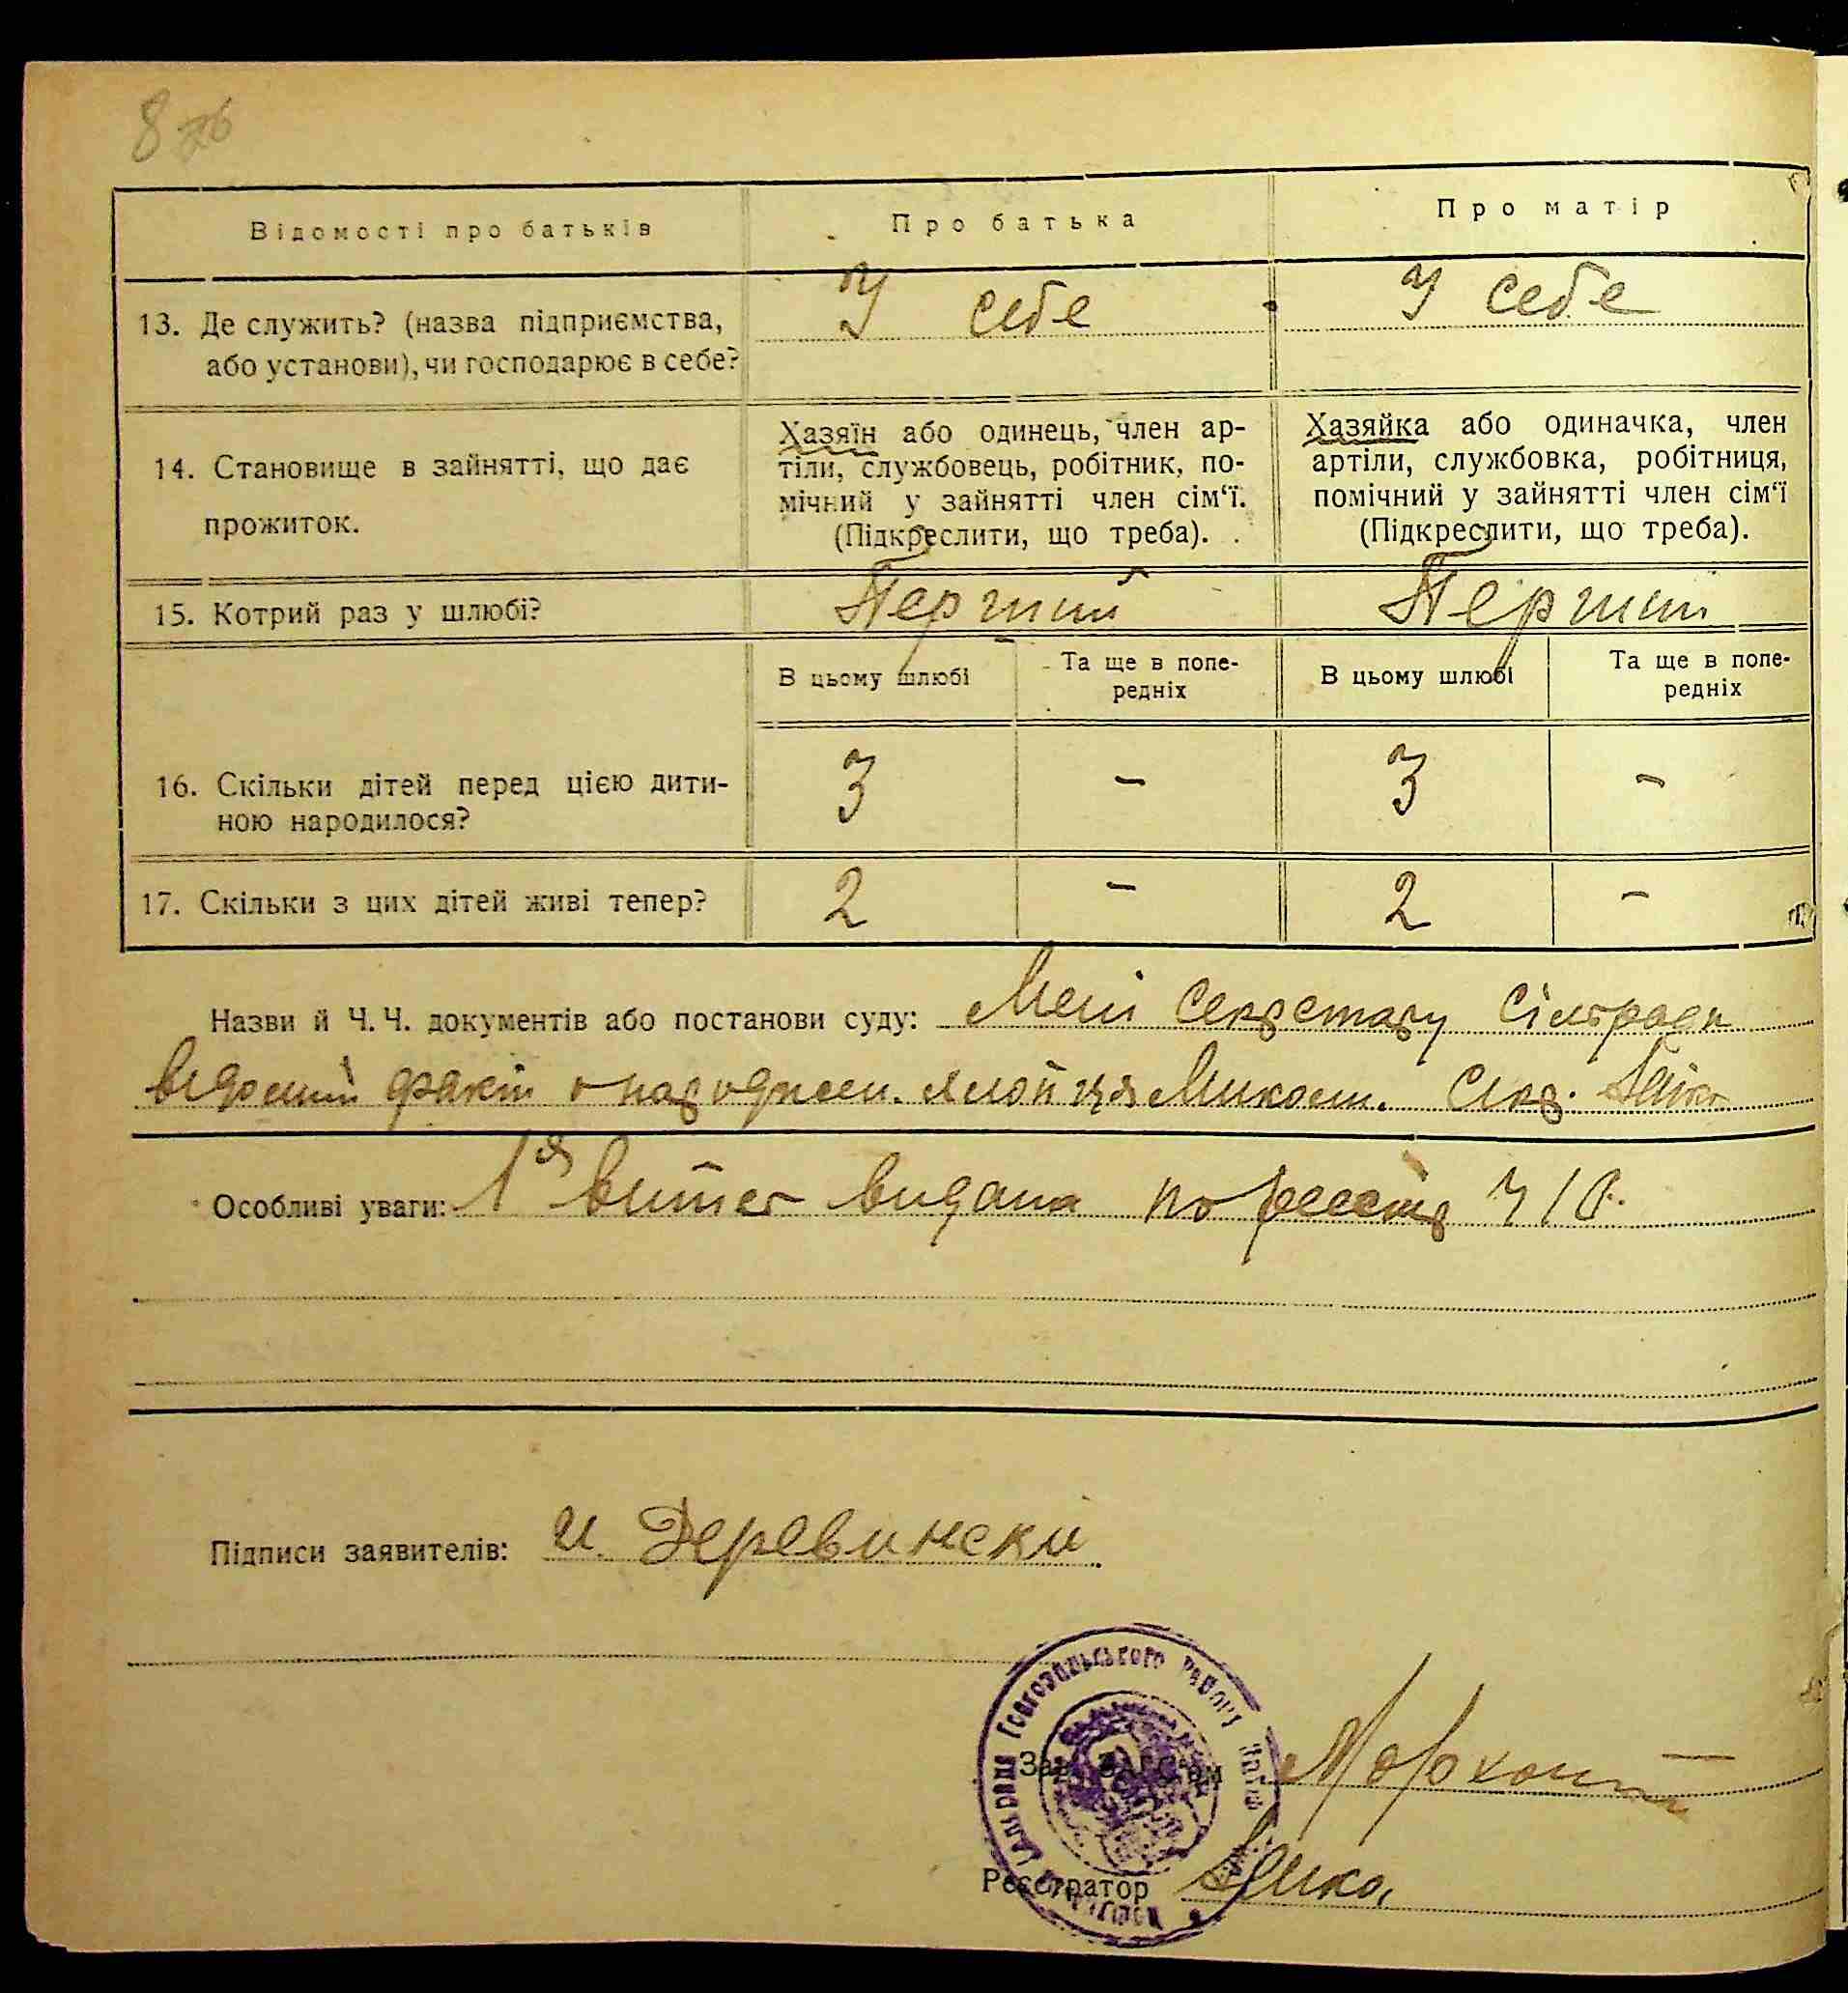 8 зб
Відомості про батьків
Про батька
Про матір
13. Де служить? (назва підприємства,
або установи), чи господарює в себе?
У себе
У себе
14. Становище в зайнятті, що дає
прожиток.
Хазяїн або одинець, член ар-
тіли, службовець, робітник, по-
мічний у зайнятті член сім‘ї.
(Підкреслити, що треба).
Хазяйка або одиначка, член
артіли, службовка, робітниця,
помічний у зайнятті член сім‘ї
(Підкреслити, що треба).
15. Котрий раз у шлюбі?
Перший
Перший
В цьому шлюбі
Та ще в попе-
редніх
В цьому шлюбі
Та ще в попе-
редніх
16. Скільки дітей перед цією дити-
ною народилося?
3 – 3 –
17. Скільки з цих дітей живі тепер?
2 – 2 –
Назви й Ч. Ч. документів або постанови суду: Мені Секретару Сільради
відомий факт о народжен. Секр.
Особливі уваги: 1й витяг видана по реестр
Підписи заявителів: И. Деревински
району
Зав. ЗАГС‘ом
Реєстратор